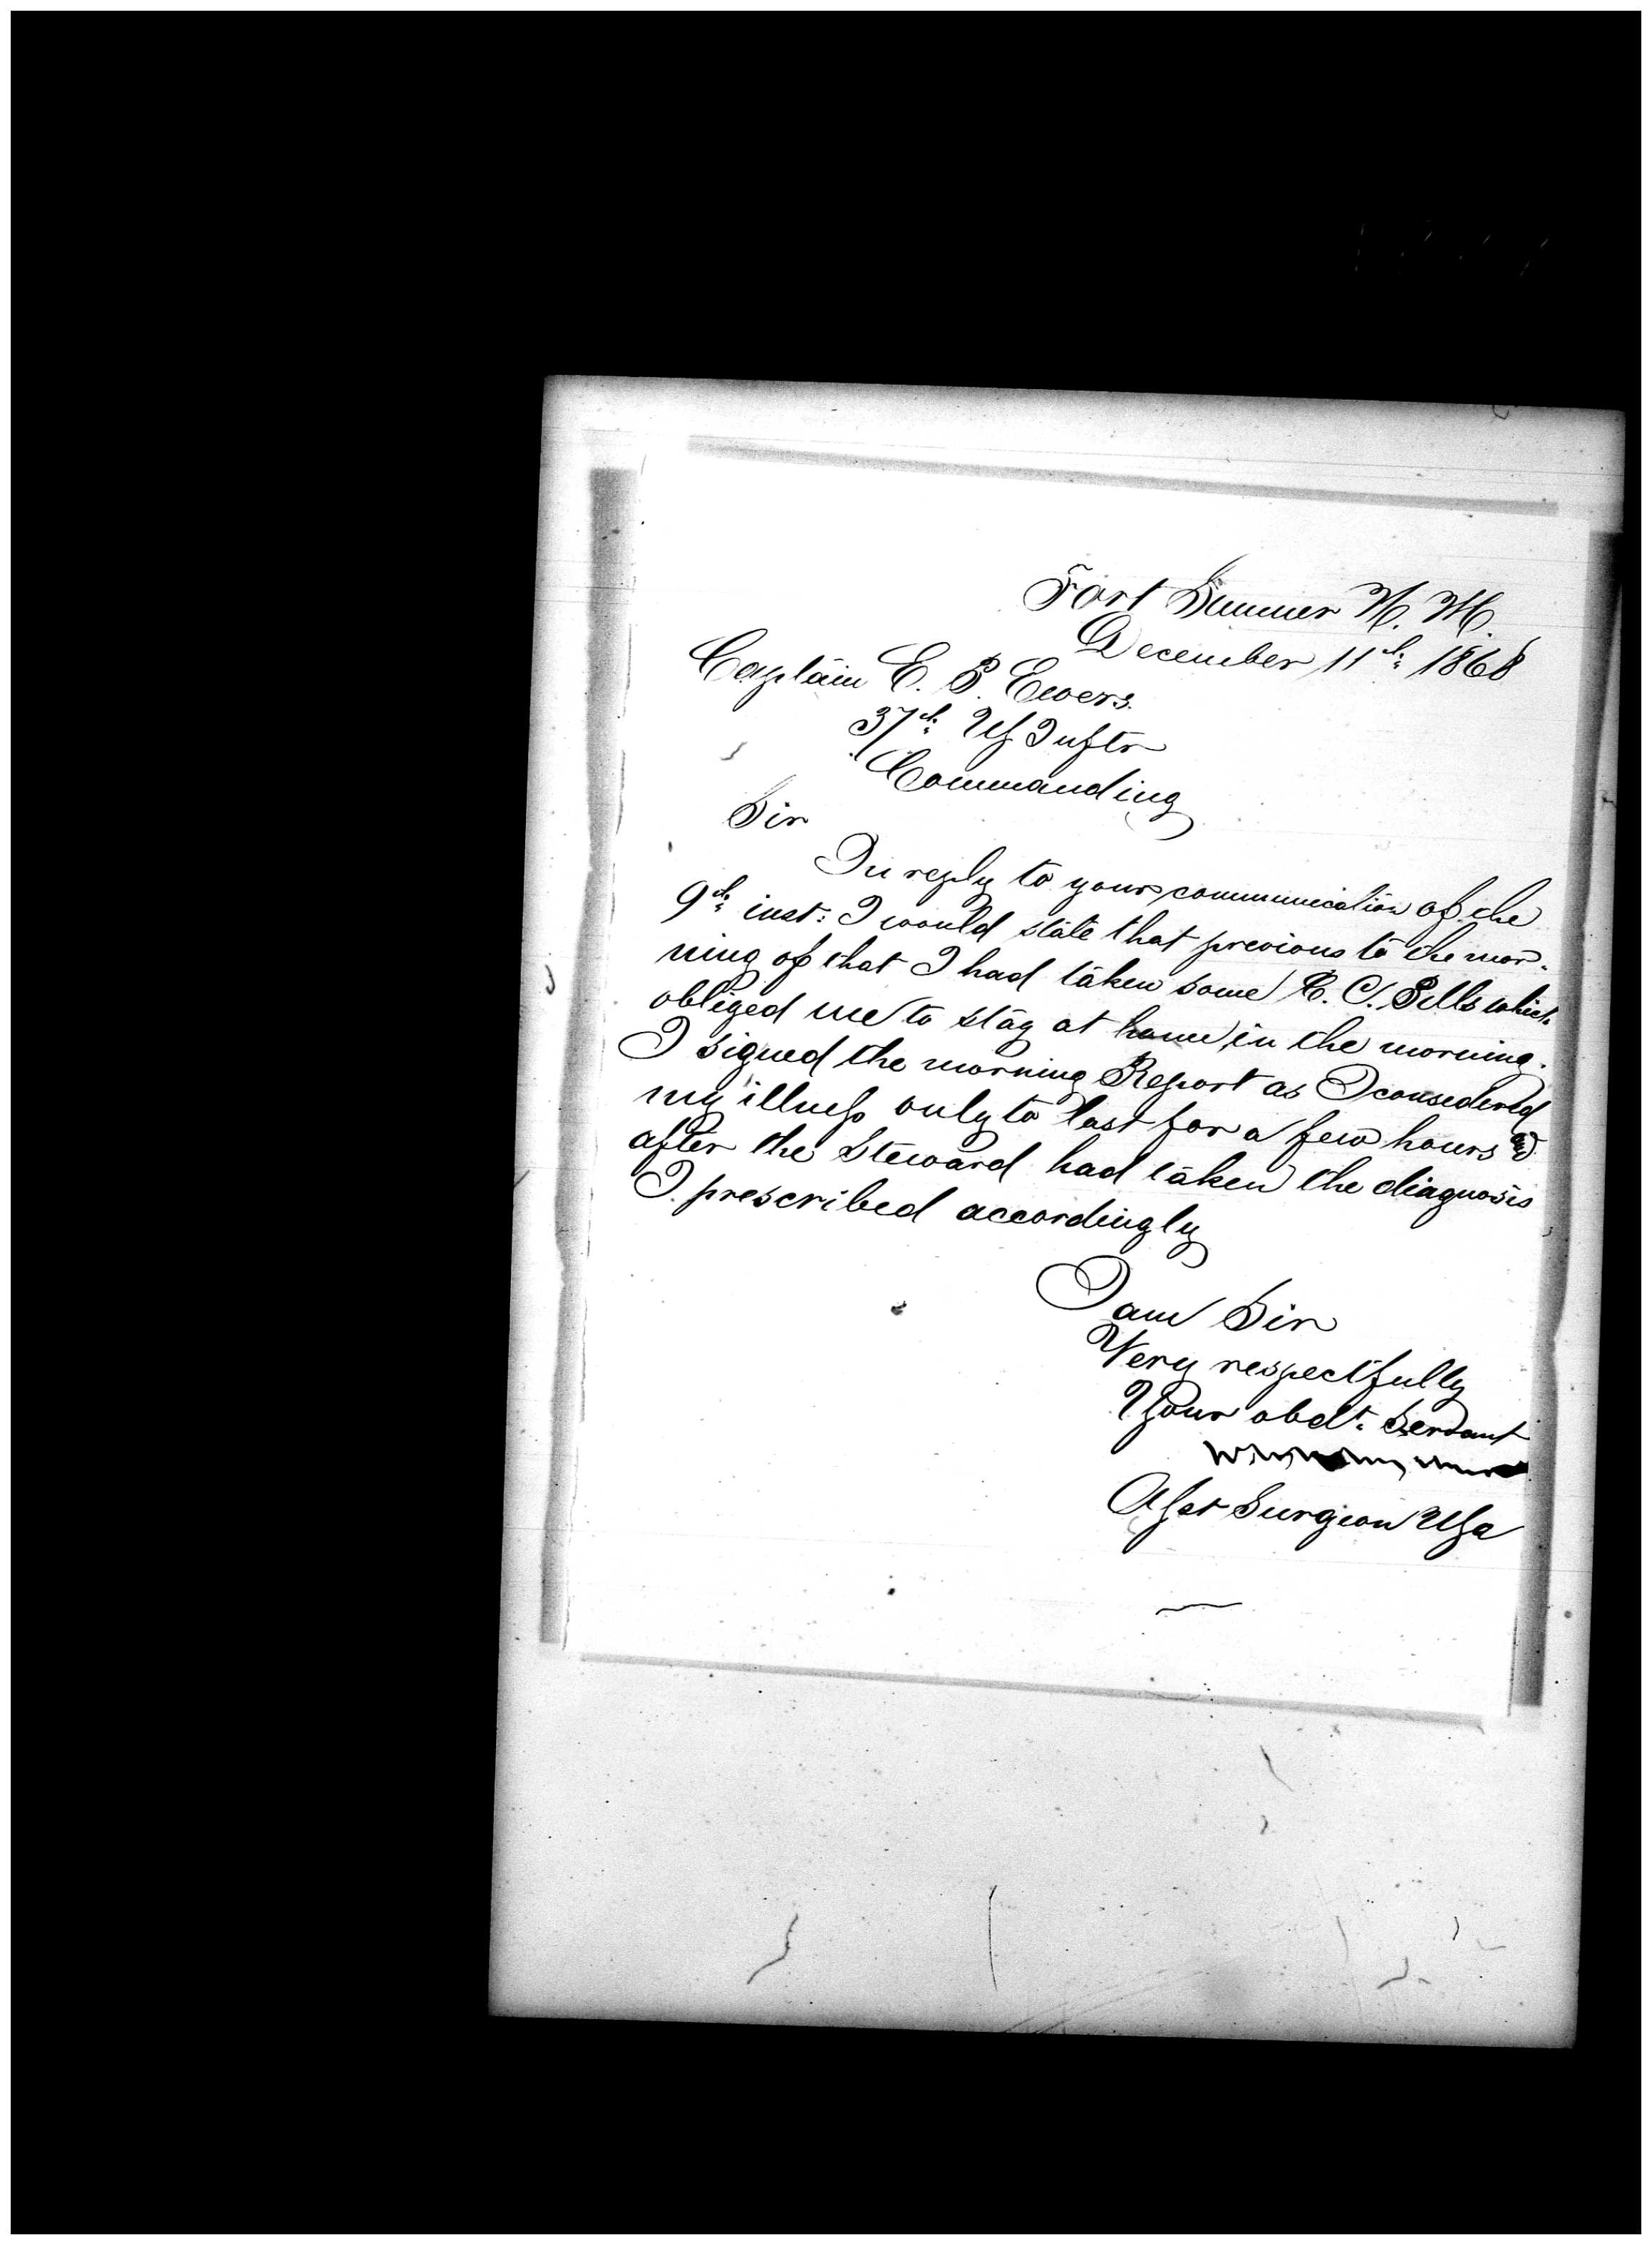 Fort Sumner N. M.
December 11th 1868
Captain E. P. Ewers.
37th US Inftr
Commanding
Sir
In reply to your communication of the
9th inst: I would state that previous to the mor-
ning of that I had taken some C. C. Pills which
obliged me to stay at home in the morning.
I signed the morning Report as I considered
my illness only to last for a few hours and
after the Steward had taken the diagnosis
I prescribed accordingly
I am Sir
Very respectfully
Your obdt. Servant
Asst Surgeon USA